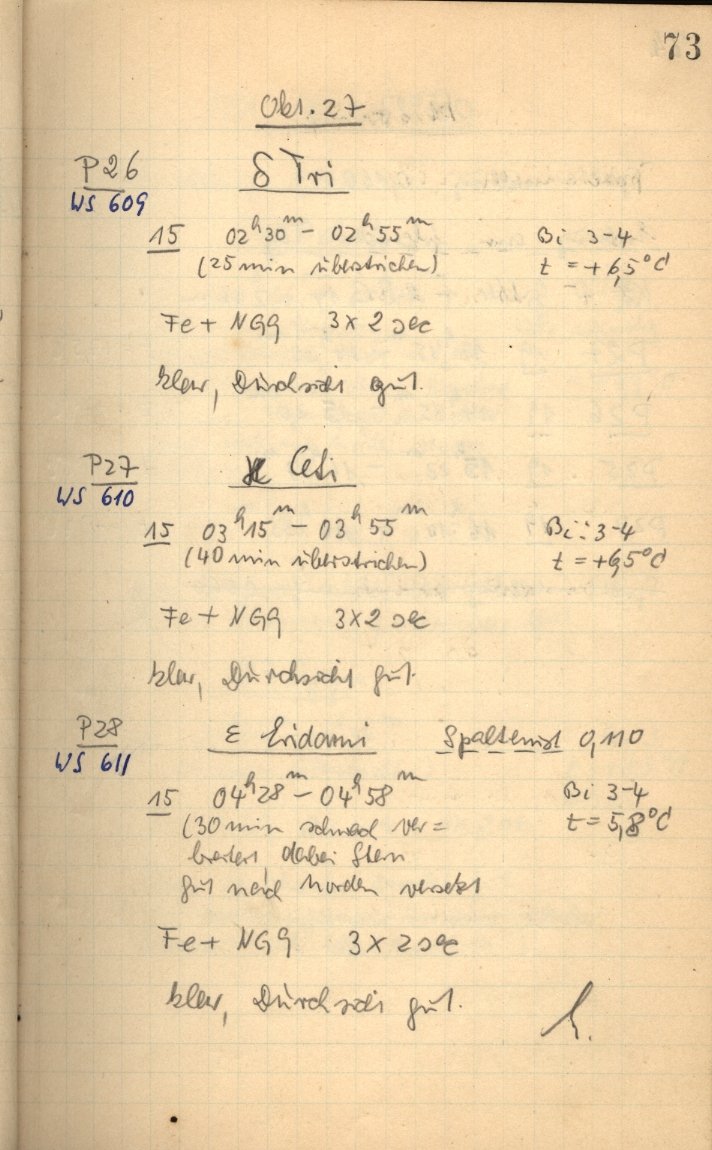 73
Okt. 27
P26 δ Tri
WS 609
15 02ʰ30ᵐ – 02ʰ55ᵐ Bi 3-4
(25 min überstrichen) t = +6,5°C
Fe + NG9 3 x 2 sec
klar, Durchsicht gut.
P27 κ Ceti
WS 610
15 03ʰ15ᵐ – 03ʰ55ᵐ Bi: 3-4
(40 min überstrichen) t = +6,5°C
Fe + NG9 3x2 sec
klar, Durchsicht gut.
P28 ε Eridani Spalteinst 0,110
WS 611
15 04ʰ28ᵐ – 04ʰ58ᵐ Bi 3-4
(30 min schwach ver= t = 5,8°C
breitert dabei Stern
gut nach Norden versetzt
Fe + NG9 3 x 2 sec
klar, Durchsicht gut.